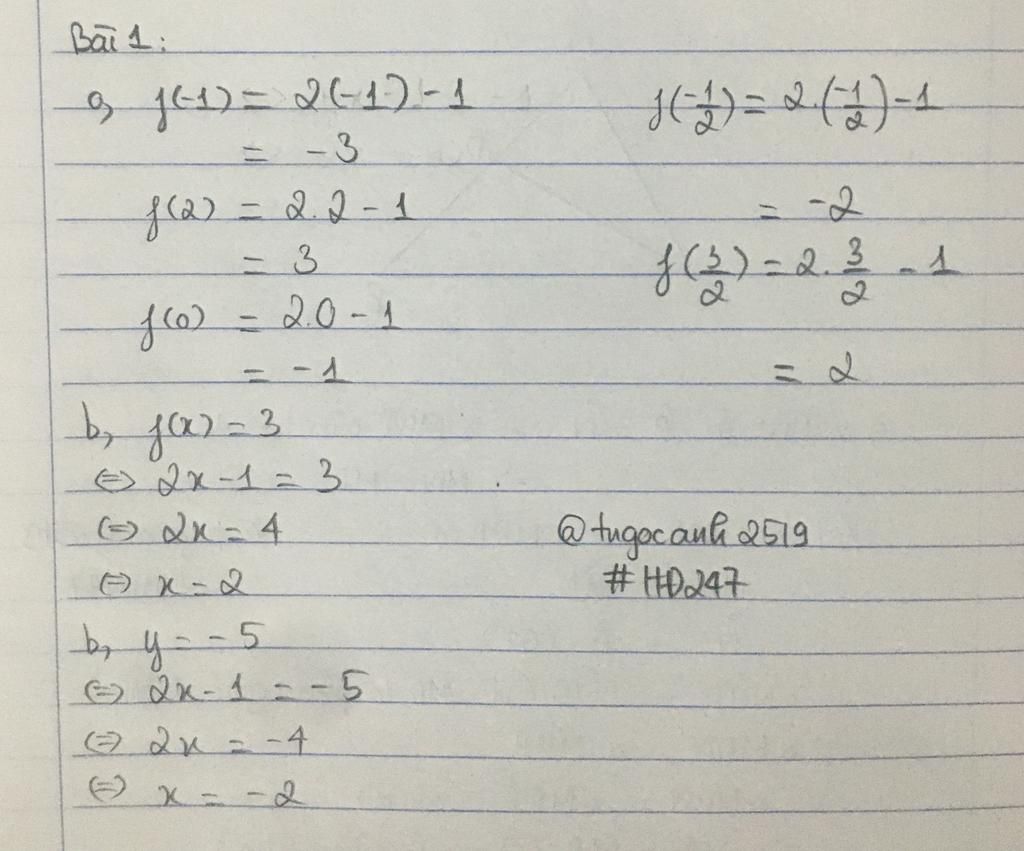 Bài 1:
a, f(-1) = 2(-1) - 1
= -3
f(2) = 2.2 - 1
= 3
f(0) = 2.0 - 1
= -1
f(-1/2) = 2.(-1/2) - 1
= -2
f(3/2) = 2. 3/2 - 1
= 2
b, f(x) = 3
⇔ 2x - 1 = 3
⇔ 2x = 4
⇔ x = 2
@tngocanh2519
#HD247
b, y = -5
⇔ 2x - 1 = -5
⇔ 2x = -4
⇔ x = -2